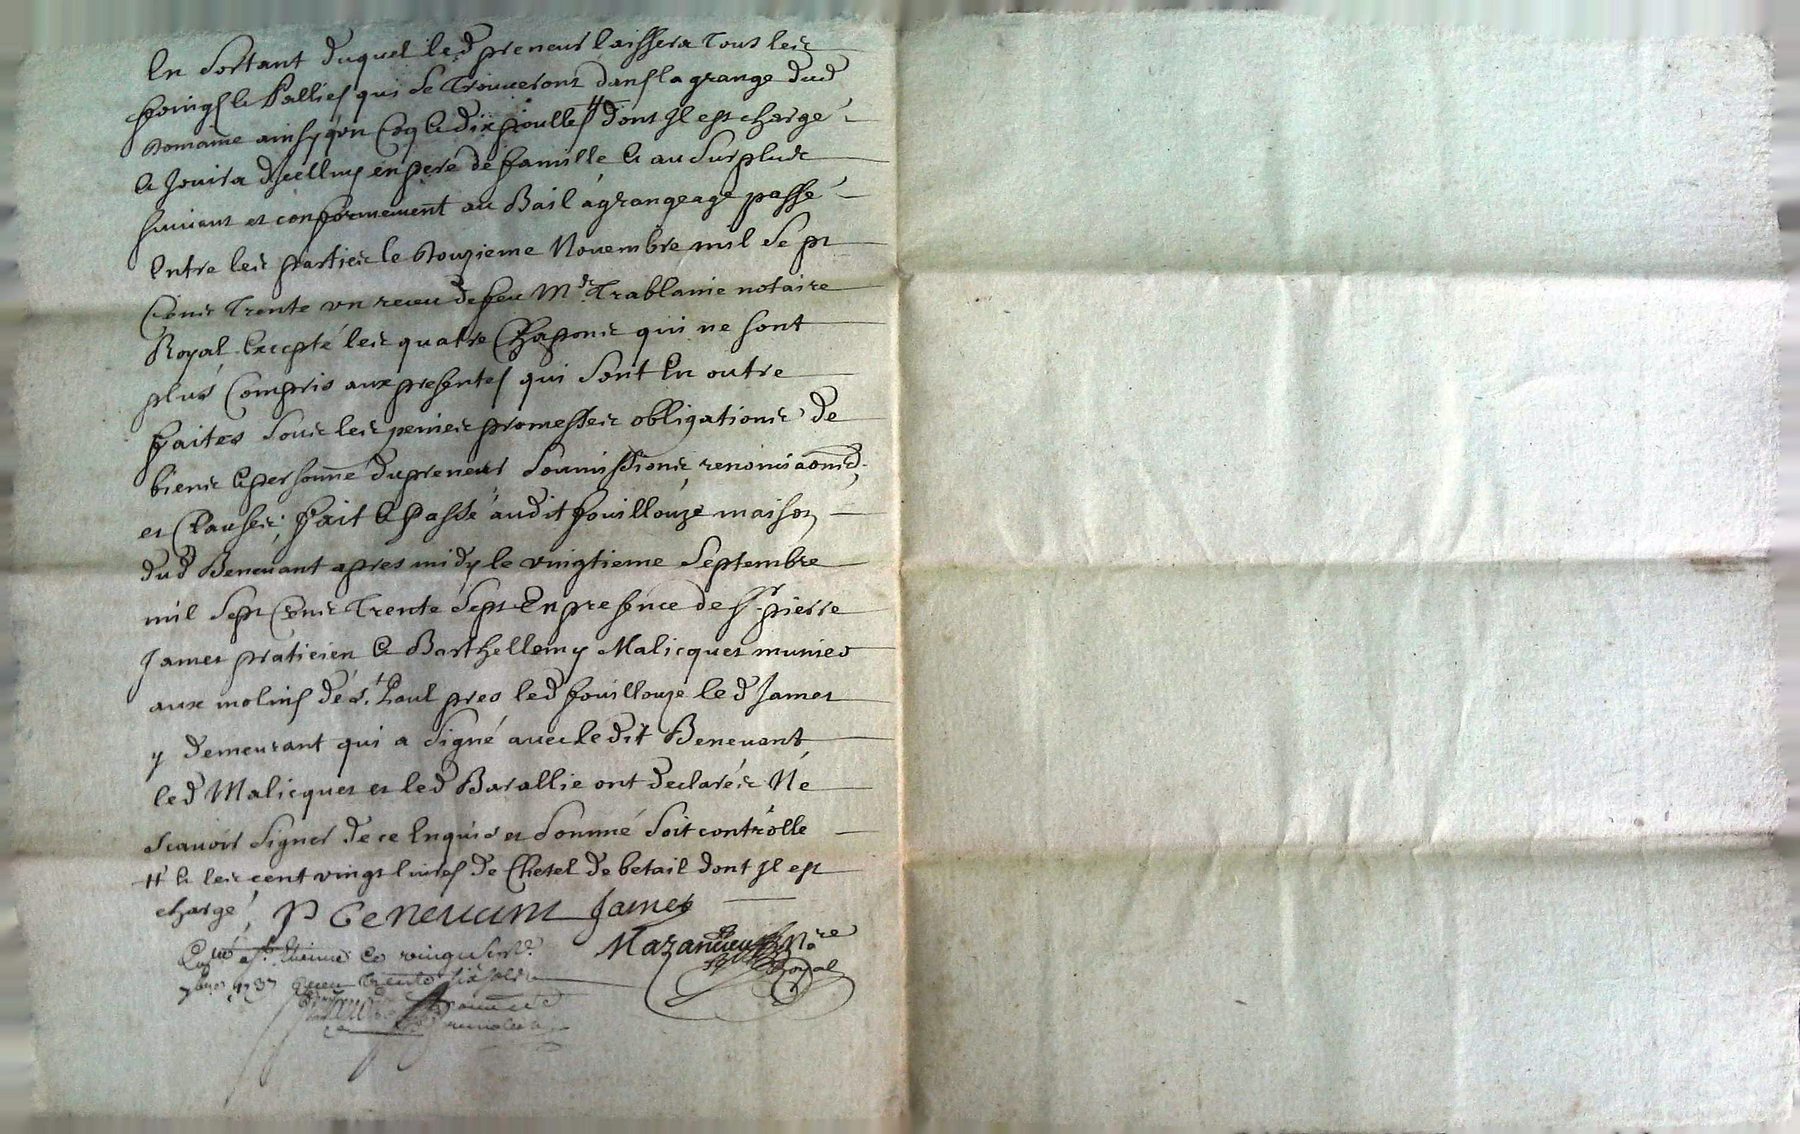 En Sortant duquel led preneur laissera Tous les
foings & Pallies qui se Trouveront dans la grange dud
Domaine ainsy qun Coq & dix poulles # dont Il est chargé
& Jouira dicelluy en pere de famille & au Surplus
suivant et conformement au Bail a grangeage passé
Entre les parties le douzieme Novembre mil Sept
Cents Trente un receu de feu Me Trablaine notaire
Royal Excepté les quatre Chapons qui ne sont
plus Compris aux presentes qui Sont En outre
faites Sous les peines promesses obligations de
biens & personne du preneur Soumissions renonciaons
et Clauses, fait & Passé audit fouillouze maison
dud Benevant apres midy le vingtieme Septembre
mil Sept Cents Trente Sept En presence de Sr pierre
James praticien & Barthellemy Malicquet munier
aux molins de St Paul pres led fouillouze le d James
y demeurant qui a Signé avec ledit Benevant
led Malicquet et led Barallie ont declarés Ne
scavoir Signer de ce Enquis et Sommé Soit controllé
# & les cent vingt livres de Chetel de betail dont Il est
chargé, P Benevant James
Mazancieu Nre
Royal
a St Etienne ce vingt
1737 Receu trente six sols